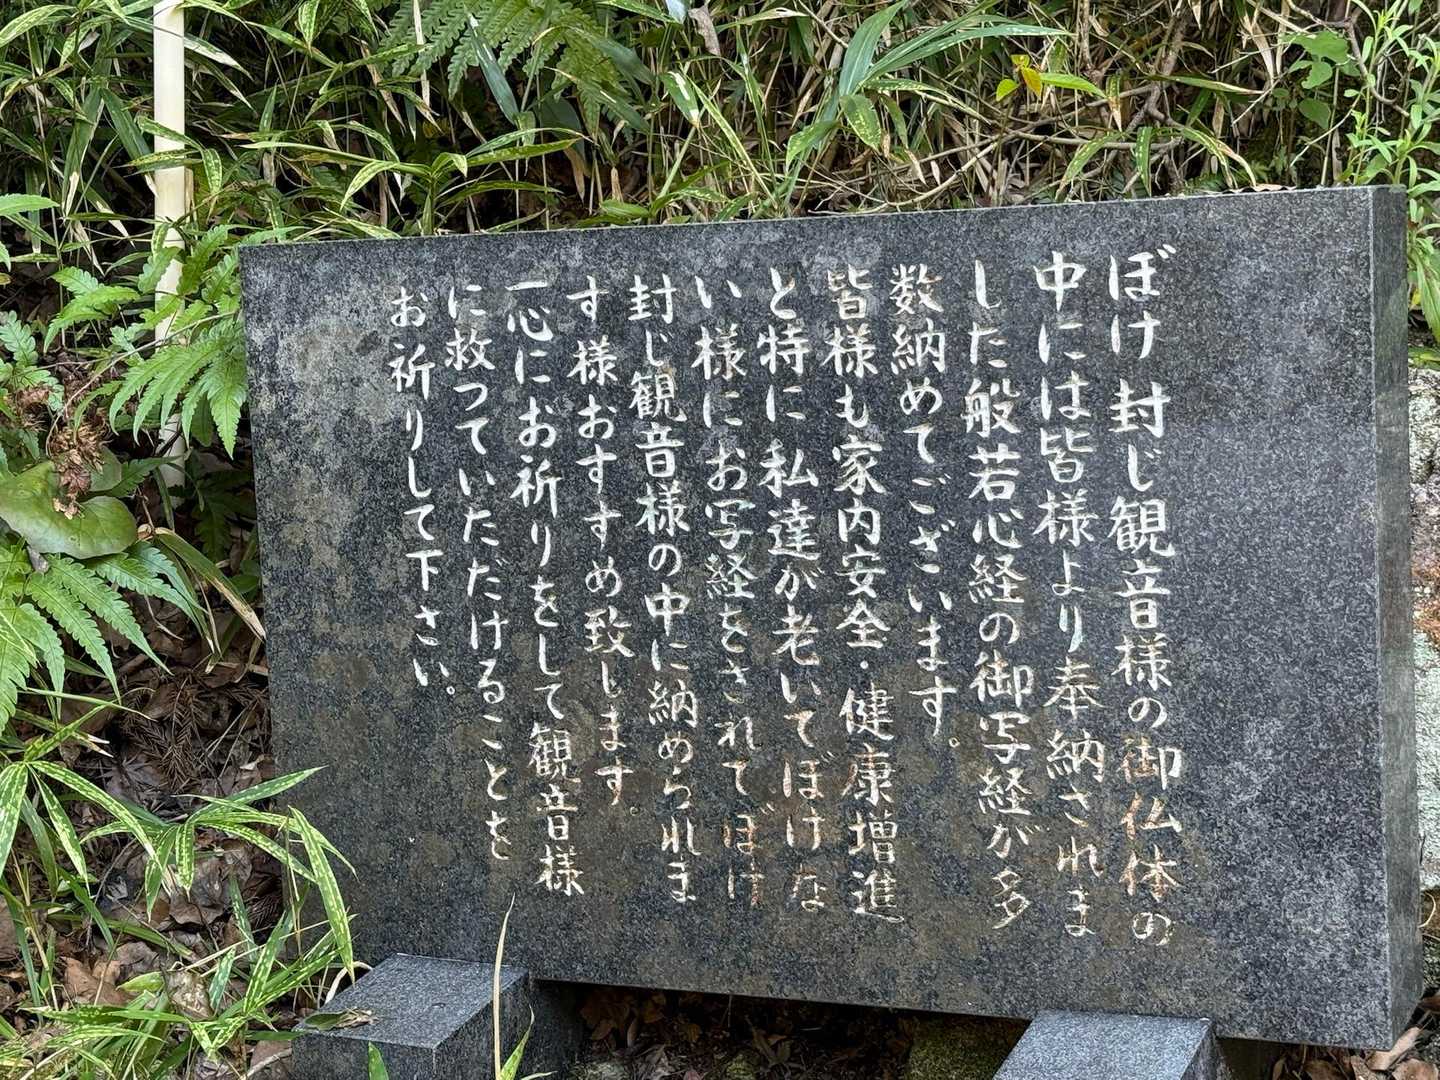 ぼけ封じ観音様の御仏体の
中には皆様より奉納されま
した般若心経の御写経が多
数納めてございます。
皆様も家内安全・健康増進
と特に私達が老いてぼけな
い様にお写経をされてぼけ
封じ観音様の中に納められま
す様おすすめ致します。
一心にお祈りをして観音様
に救っていただけることを
お祈りして下さい。